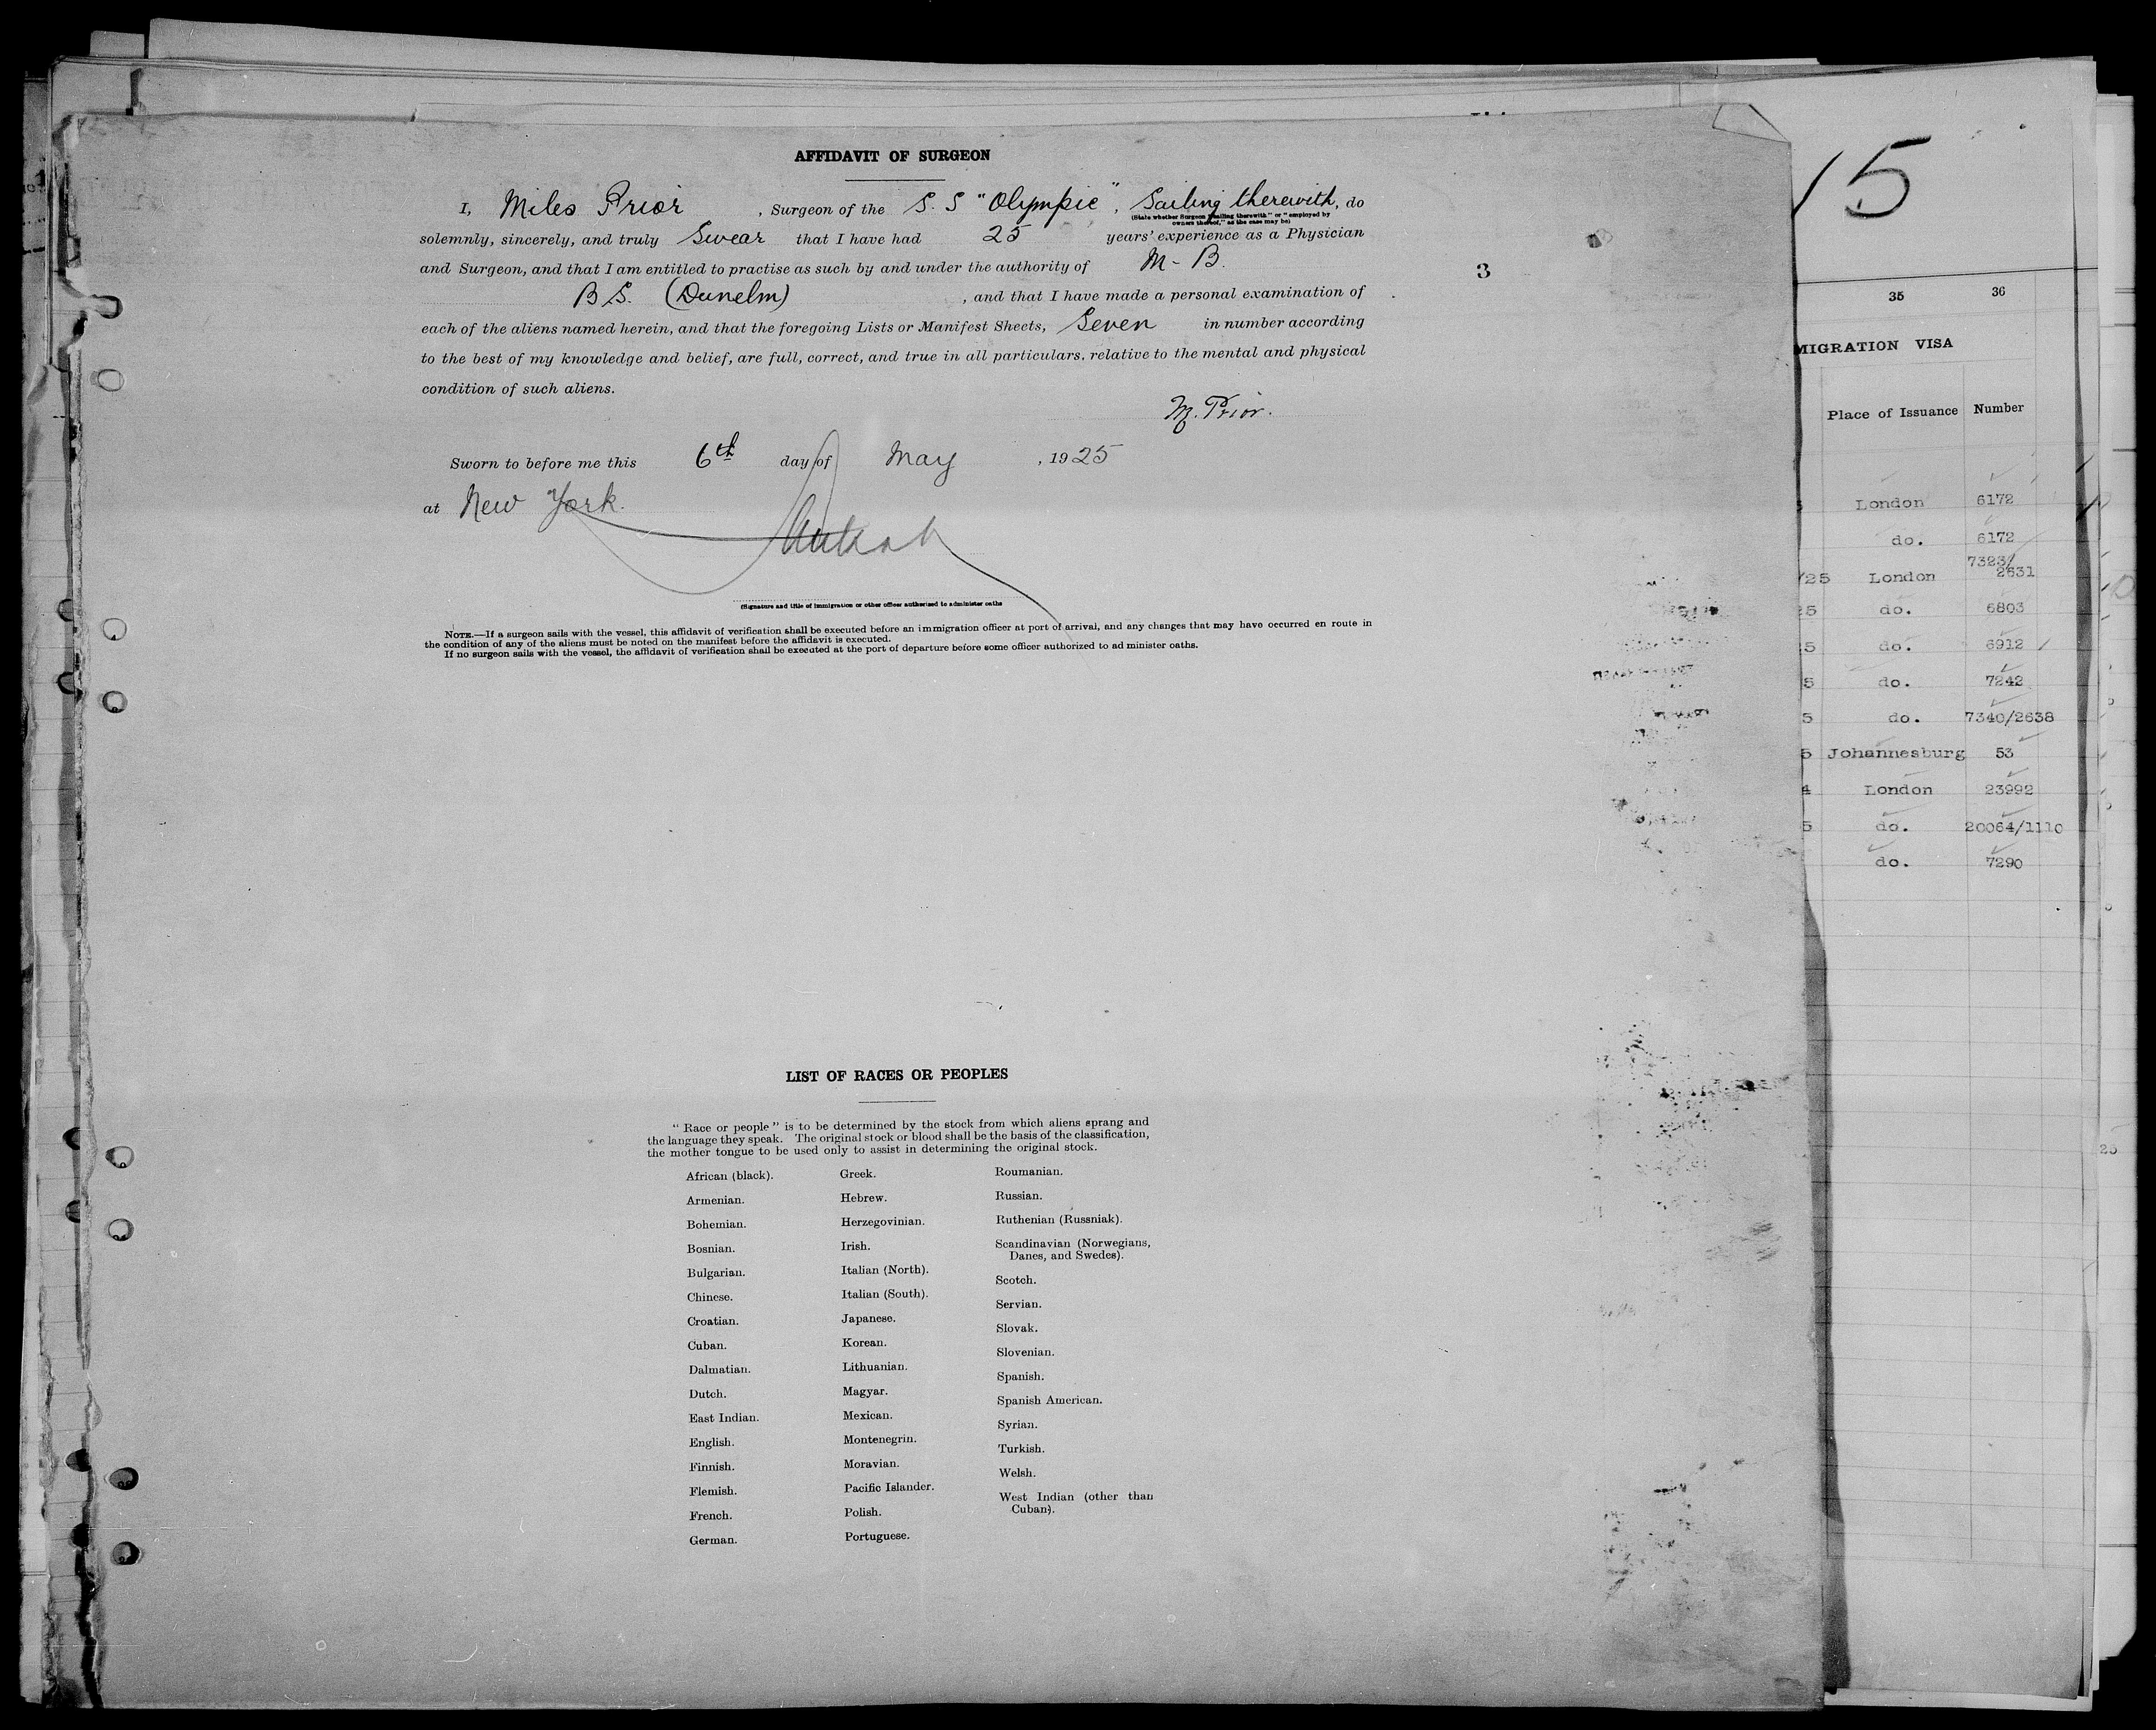 AFFIDAVIT OF SURGEON
I, Miles Prior, Surgeon of the S.S "Olympic", Sailing therewith, do
(State whether Surgeon "sailing therewith" or "employed by
owners thereof," as the case may be)
solemnly, sincerely, and truly Swear that I have had 25 years' experience as a Physician
and Surgeon, and that I am entitled to practise as such by and under the authority of M-B.
B S. (Dunelm), and that I have made a personal examination of
each of the aliens named herein, and that the foregoing Lists or Manifest Sheets, Seven in number according
to the best of my knowledge and belief, are full, correct, and true in all particulars. relative to the mental and physical
condition of such aliens.
M. Prior.
Sworn to before me this 6th day of May, 1925
at New York.
(Signature and title of immigration or other officer authorised to administer oaths
NOTE.—If a surgeon sails with the vessel, this affidavit of verification shall be executed before an immigration officer at port of arrival, and any changes that may have occurred en route in
the condition of any of the aliens must be noted on the manifest before the affidavit is executed.
If no surgeon sails with the vessel, the affidavit of verification shall be executed at the port of departure before some officer authorized to ad minister oaths.
3
LIST OF RACES OR PEOPLES
"Race or people" is to be determined by the stock from which aliens sprang and
the language they speak. The original stock or blood shall be the basis of the classification,
the mother tongue to be used only to assist in determining the original stock.
African (black).
Armenian.
Bohemian.
Bosnian.
Bulgarian.
Chinese.
Croatian.
Cuban.
Dalmatian.
Dutch.
East Indian.
English.
Finnish.
Flemish.
French.
German.
Greek.
Hebrew.
Herzegovinian.
Irish.
Italian (North).
Italian (South).
Japanese.
Korean.
Lithuanian.
Magyar.
Mexican.
Montenegrin.
Moravian.
Pacific Islander.
Polish.
Portuguese.
Roumanian.
Russian.
Ruthenian (Russniak).
Scandinavian (Norwegians,
Danes, and Swedes).
Scotch.
Servian.
Slovak.
Slovenian.
Spanish.
Spanish American.
Syrian.
Turkish.
Welsh.
West Indian (other than
Cuban).
15
35 36
MIGRATION VISA
Place of Issuance Number
London 6172
do. 6172
7323/
/25 London 2631
5 do. 6803
5 do. 6912
5 do. 7242
5 do. 7340/2638
5 Johannesburg 53
4 London 23992
5 do. 20064/1110
do. 7290